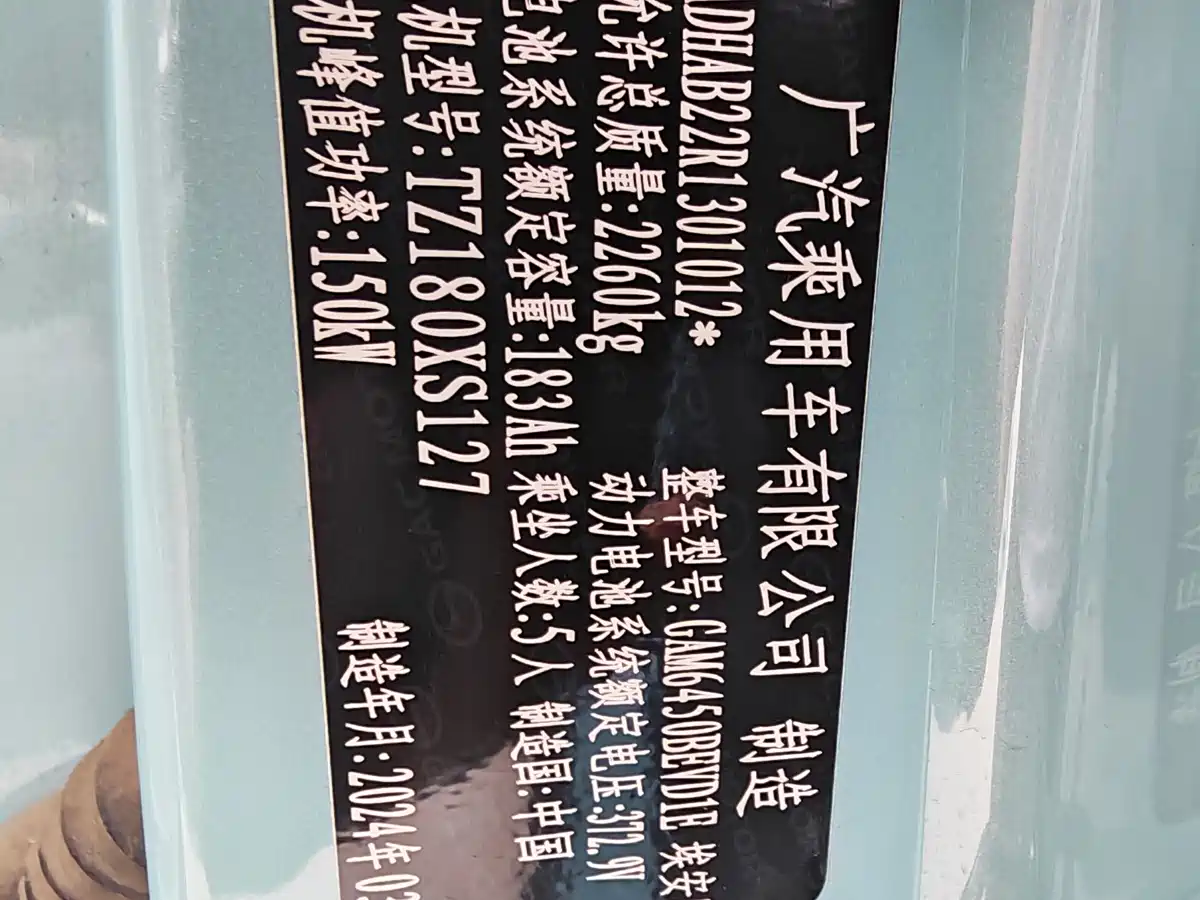 广汽乘用车有限公司 制造
DHAB22R1301012* 整车型号:GAM6450BEVD1E 埃安
允许总质量:2260kg 动力电池系统额定电压:372.9V
电池系统额定容量:183Ah 乘坐人数:5人 制造国:中国
机型号:TZ180XS127
机峰值功率:150kW 制造年月:2024年03